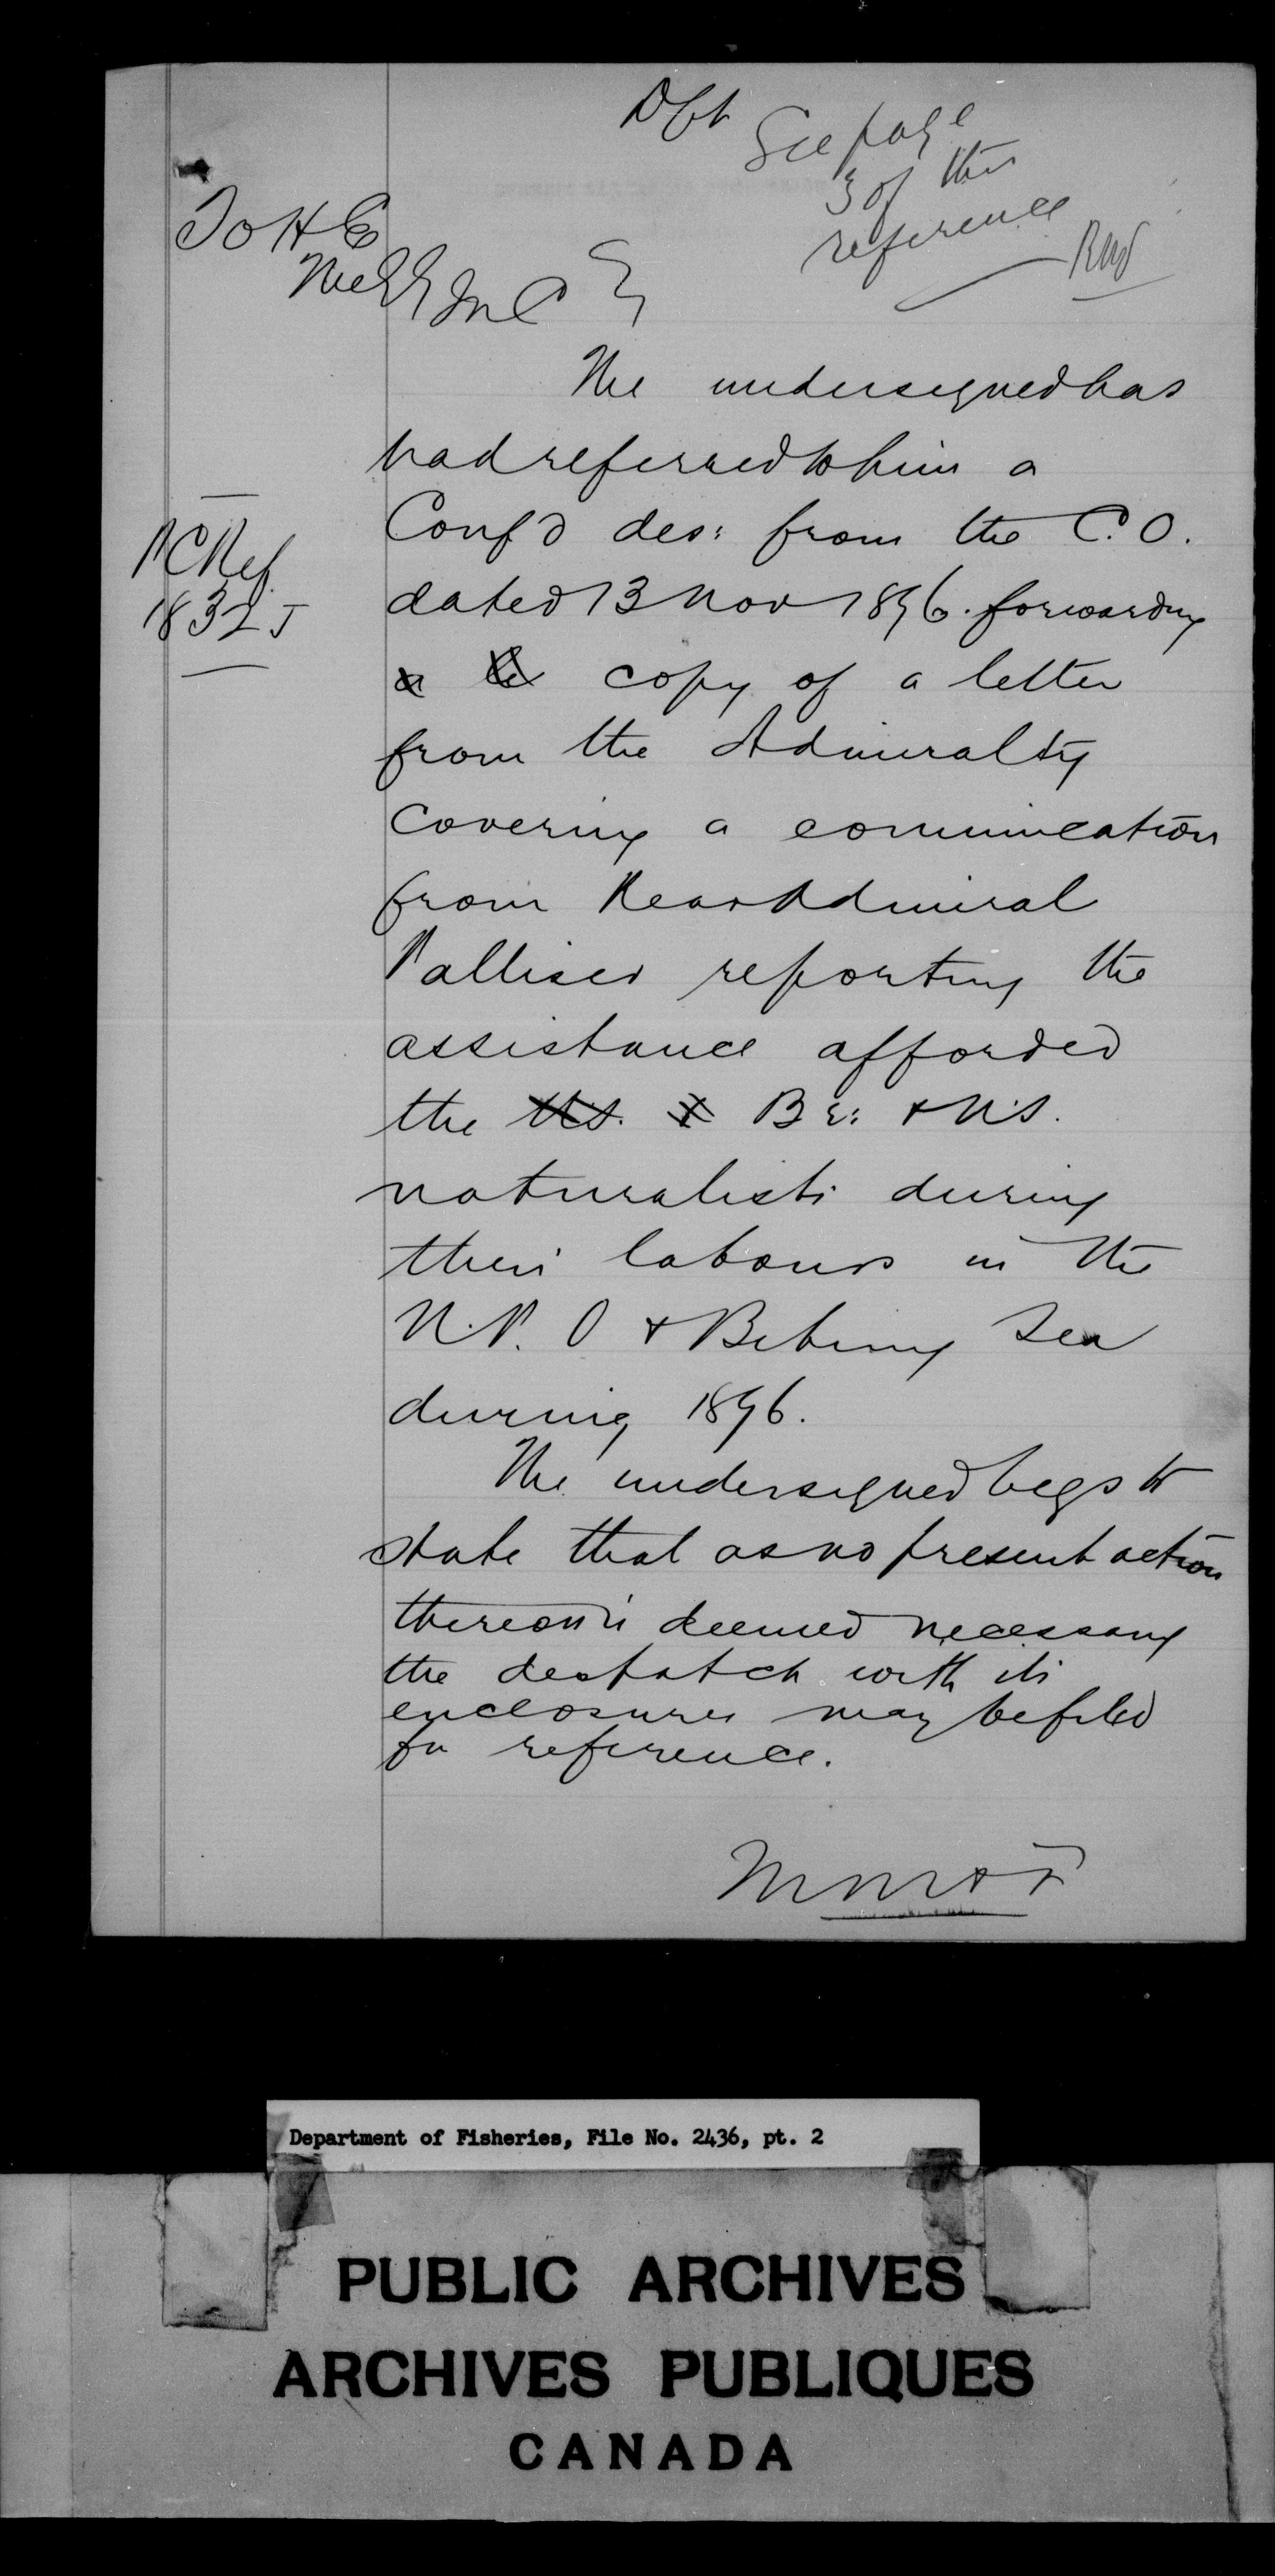 Dft
See page
3 of this
reference
To H E
The G G In C
The undersigned has
had referred to him a
Conf'd des: from the C.O.
dated 13 Nov 1896. forwarding
copy of a letter
from the Admiralty
covering a communication
from Rear Admiral
Palliser reporting the
assistance afforded
the U.S. & Br: & U.S.
naturalists during
their labours in the
N.P. O & Behring Sea
during 1896.
The undersigned begs to
state that as no present action
thereon is deemed necessary
the despatch with its
enclosures may be filed
for reference.
PC Ref
1832 J
M M & F
Department of Fisheries, File No. 2436, pt. 2
PUBLIC ARCHIVES
ARCHIVES PUBLIQUES
CANADA